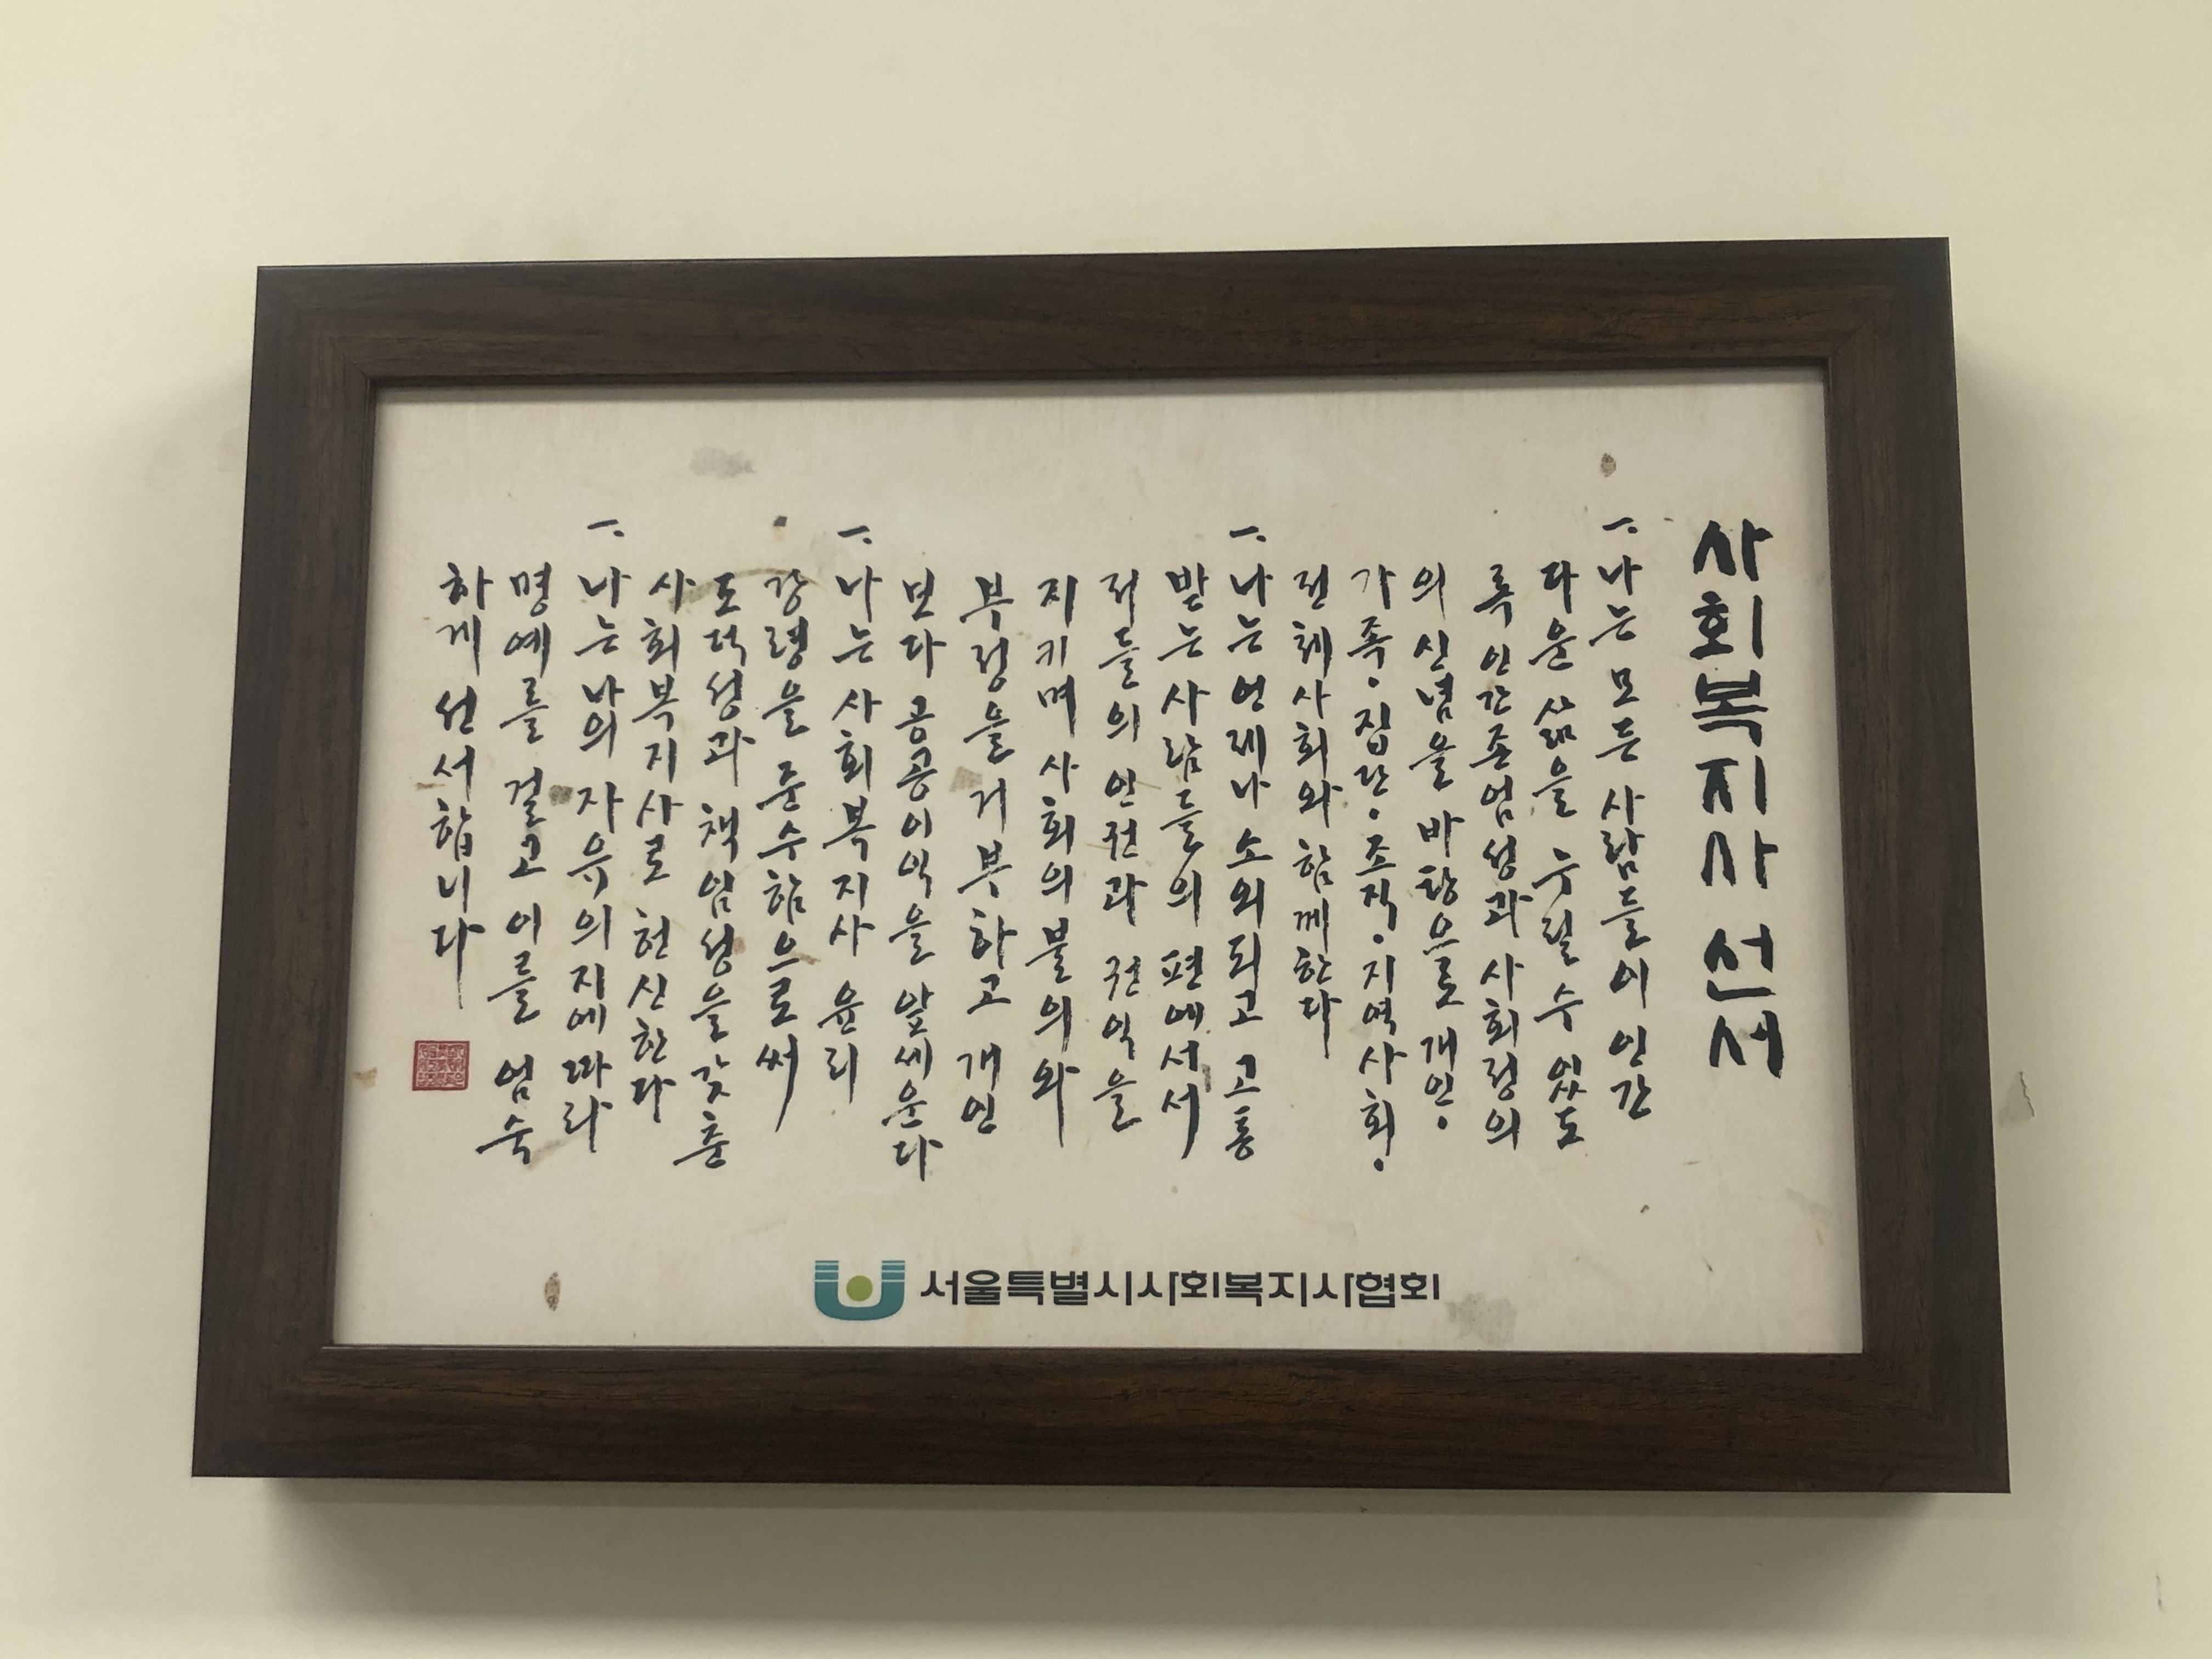 사회복지사 선서
一. 나는 모든 사람들이 인간
다운 삶을 누릴 수 있도
록 인간존엄성과 사회정의
의 신념을 바탕으로 개인·
가족·집단·조직·지역사회·
전체사회와 함께한다
一. 나는 언제나 소외되고 고통
받는 사람들의 편에 서서
저들의 인권과 권익을
지키며 사회의 불의와
부정을 거부하고 개인
보다 공공이익을 앞세운다
一. 나는 사회복지사 윤리
강령을 준수함으로써
도덕성과 책임성을 갖춘
사회복지사로 헌신한다
一. 나는 나의 자유의지에 따라
명예를 걸고 이를 엄숙
하게 선서합니다
서울특별시사회복지사협회